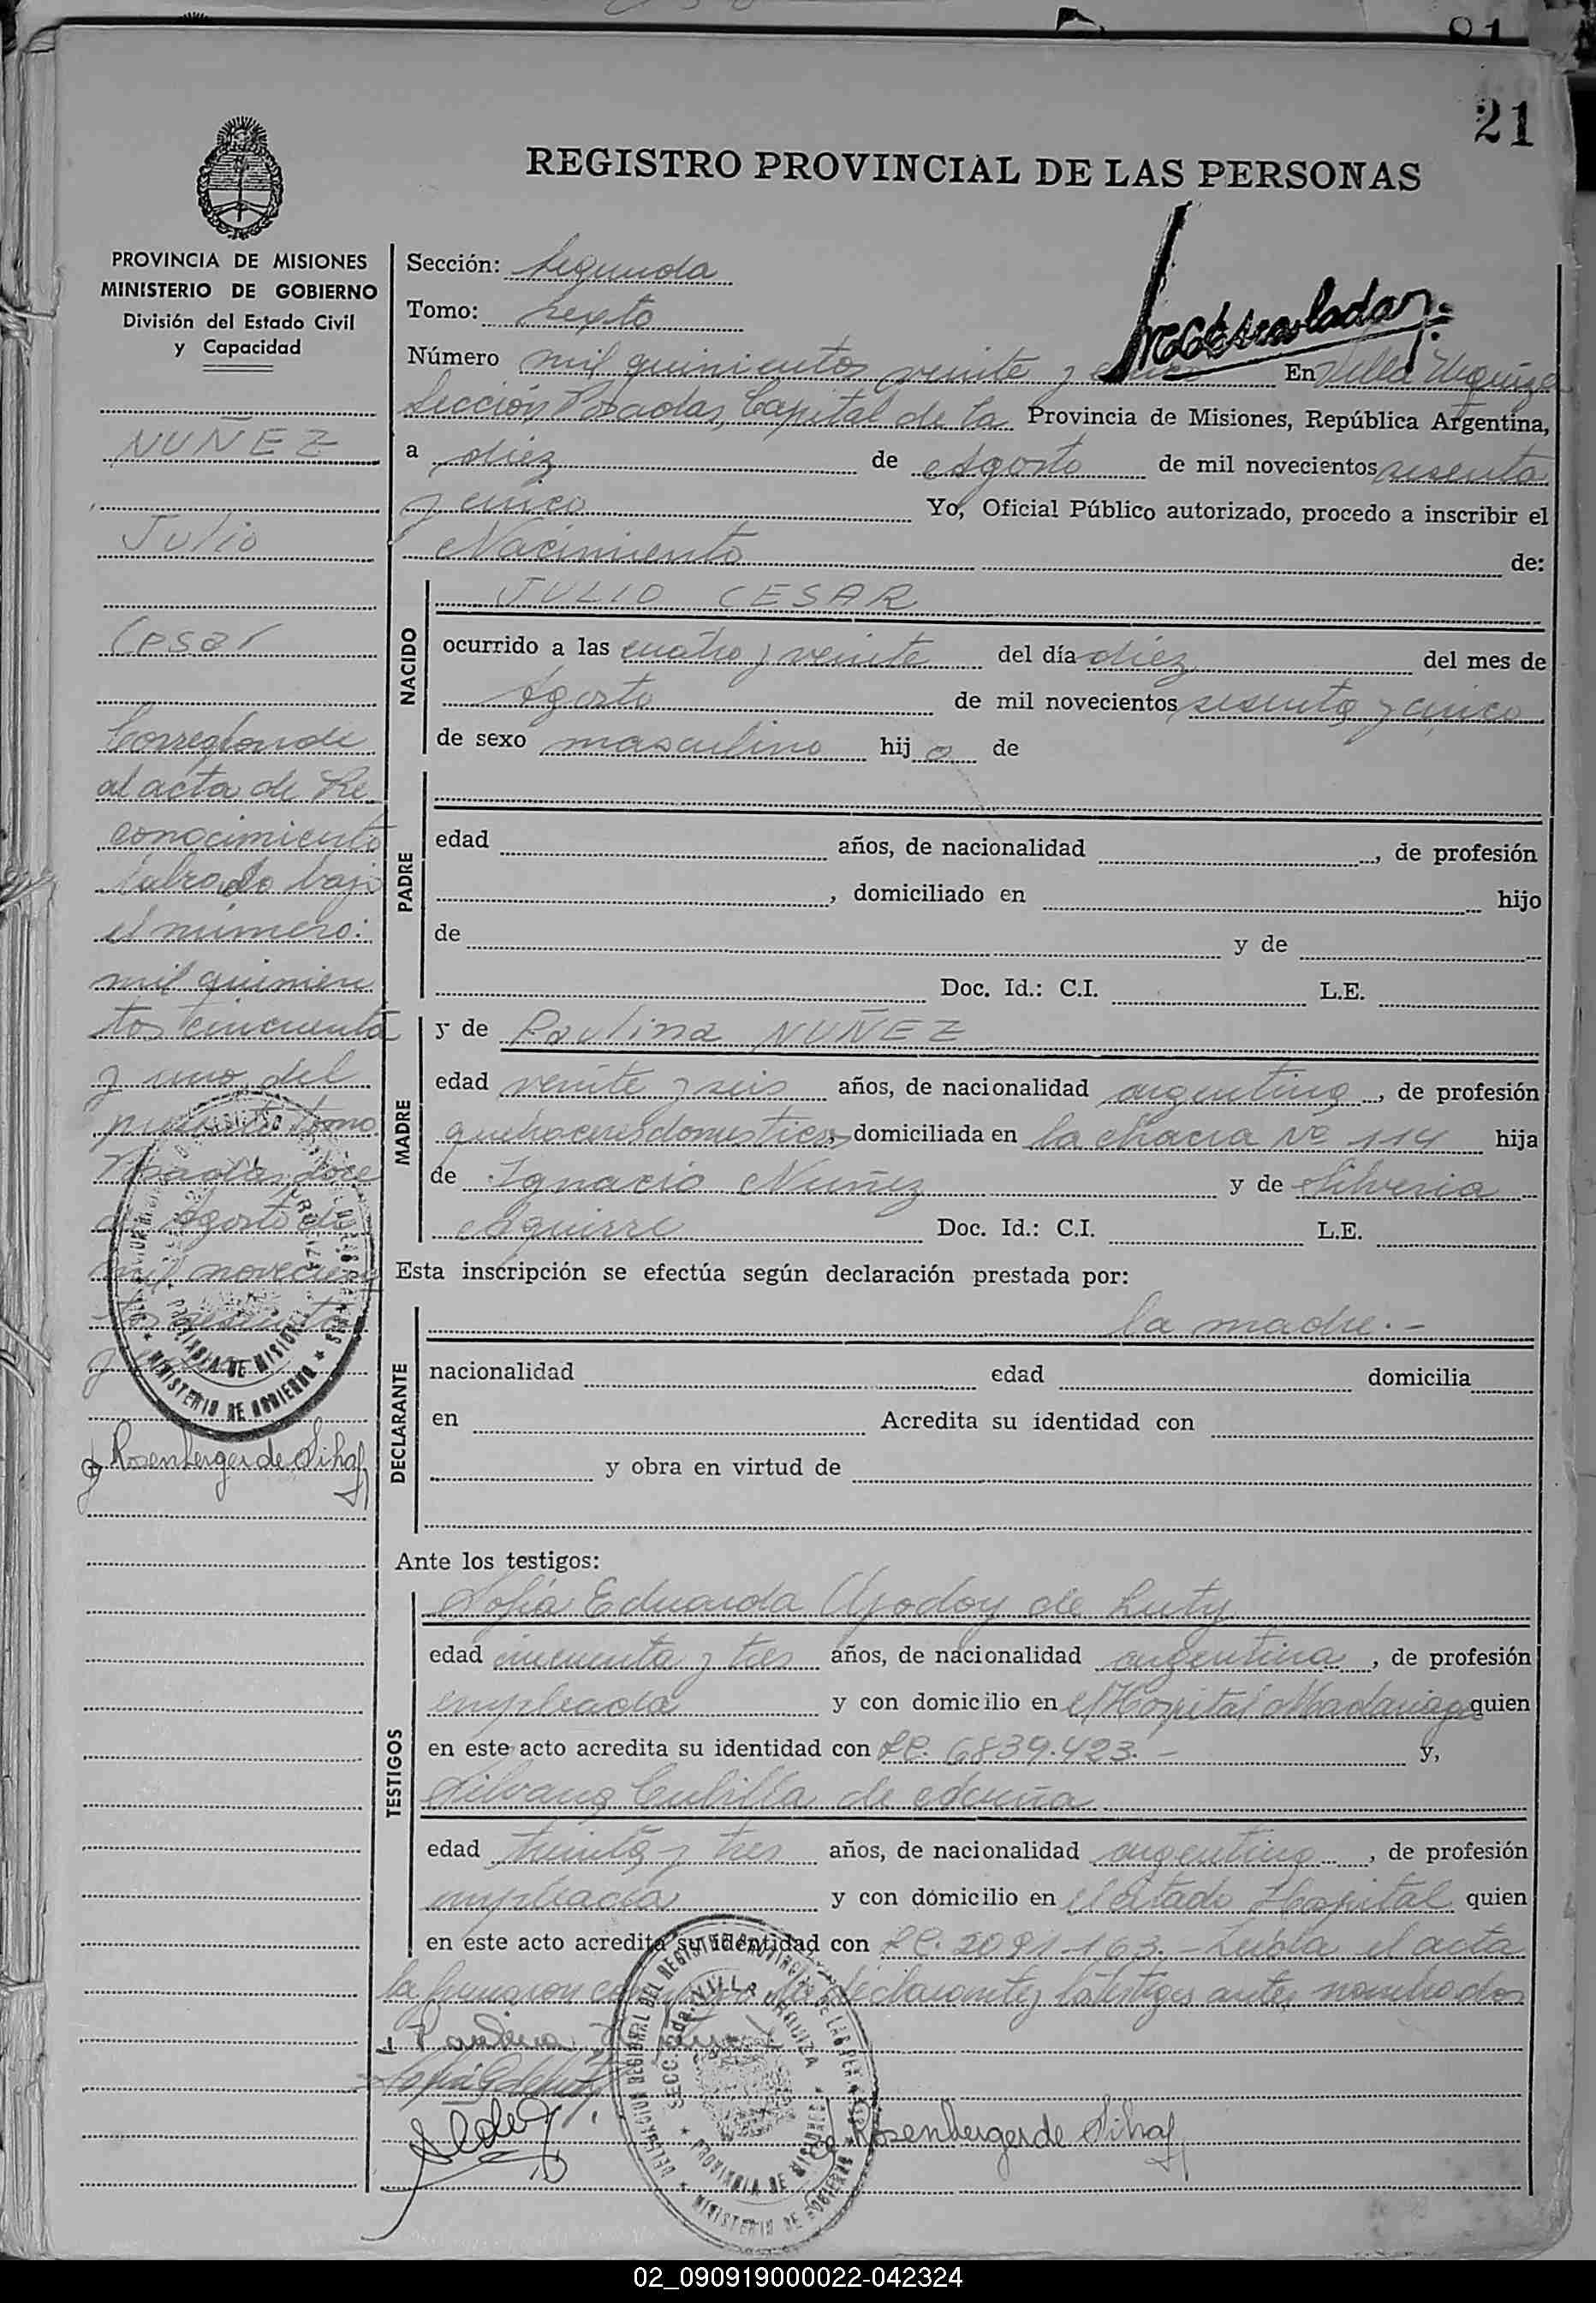 21
REGISTRO PROVINCIAL DE LAS PERSONAS
PROVINCIA DE MISIONES
MINISTERIO DE GOBIERNO
División del Estado Civil
y Capacidad
NUÑEZ
Julio
Cesar
Corresponde
al acta de Re
conocimiento
labrada bajo
el número:
mil quinien
tos cincuenta
y uno del
presente tomo
Posadas, doce
de Agosto de
mil novecien
tos sesenta
y
Rosenberger de
Sección: Segunda
Tomo: sexto
Número mil quinientos veinte y cinco En Villa Urquiza
Sección, Posadas, Capital de la Provincia de Misiones, República Argentina,
a diez de Agosto de mil novecientos sesenta
y cinco Yo, Oficial Público autorizado, procedo a inscribir el
Nacimiento de:
NACIDO
JULIO CESAR
ocurrido a las cuatro y veinte del día diez del mes de
Agosto de mil novecientos sesenta y cinco
de sexo masculino hijo de
PADRE
edad años, de nacionalidad , de profesión
, domiciliado en hijo
de y de
Doc. Id.: C.I. L.E.
MADRE
y de Paulina NUÑEZ
edad veinte y seis años, de nacionalidad argentina, de profesión
quehaceres domesticos, domiciliada en la chacra Nº 114 hija
de Ignacio Nuñez y de Silveria
Aguirre Doc. Id.: C.I. L.E.
Esta inscripción se efectúa según declaración prestada por:
DECLARANTE
la madre.-
nacionalidad edad domicilia
en Acredita su identidad con
y obra en virtud de
Ante los testigos:
TESTIGOS
Sofía Eduarda Godoy de Luty
edad cincuenta y tres años, de nacionalidad argentina, de profesión
empleada y con domicilio en el Hospital Madariaga quien
en este acto acredita su identidad con LC. 6839.423.- y,
Silvana Cubilla de Acuña
edad treinta y tres años, de nacionalidad argentina, de profesión
empleada y con domicilio en el citado Hospital quien
en este acto acredita su identidad con LC. 2091-163.- Leída el acta
la firman declarante y testigos antes nombrados
Paulina
Rosenberger de
DELEGACION REGIONAL DEL REGISTRO PROVINCIAL DE LAS PERSONAS
SECC. 2da. VILLA URQUIZA
PROVINCIA DE MISIONES
MINISTERIO DE GOBIERNO
02_090919000022-042324